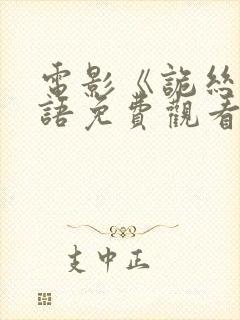 電影《詭絲
語免費觀看
支中正